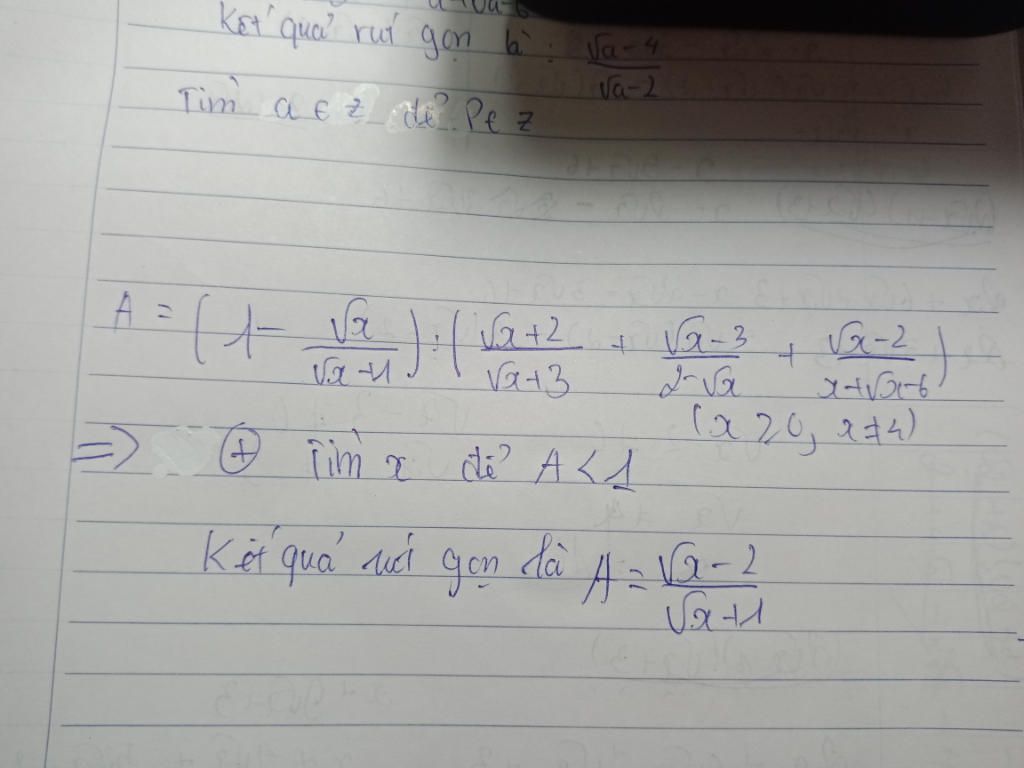 Kết quả rút gọn là : \frac{\sqrt{a}-4}{\sqrt{a}-2}
Tìm a ∈ z để P ∈ z
A = (1 - \frac{\sqrt{x}}{\sqrt{x}+1}) : (\frac{\sqrt{x}+2}{\sqrt{x}+3} + \frac{\sqrt{x}-3}{2-\sqrt{x}} + \frac{\sqrt{x}-2}{x+\sqrt{x}-6})
(x ≥ 0, x ≠ 4)
=> ⊕ Tìm x để A < 1
Kết quả rút gọn là A = \frac{\sqrt{x}-2}{\sqrt{x}+1}